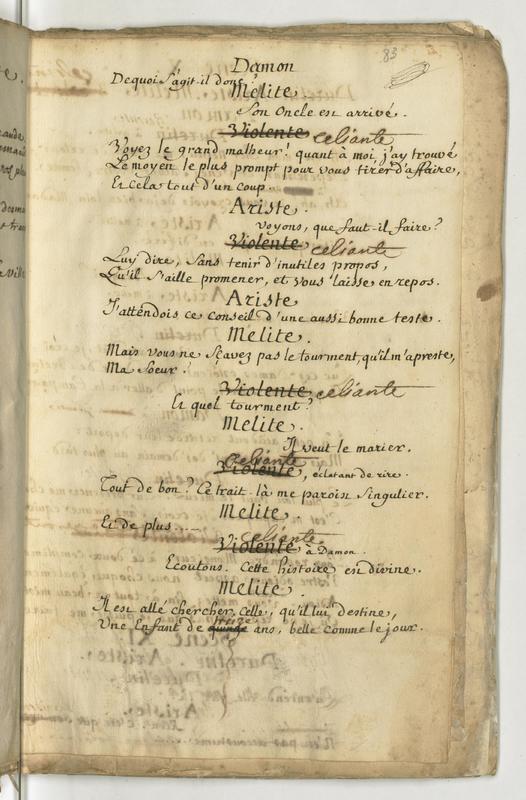 83
Damon
Dequoi s'agit-il donc?
Melite.
Son Oncle est arrivé.
Violente Celiante
Voyez le grand malheur! quant à moi, j'ay trouvé
Le moyen le plus prompt pour vous tirer d'affaire,
Et cela tout d'un coup.
Ariste.
Voyons, que faut-il faire?
Violente Celiante
Luy dire, sans tenir d'inutiles propos,
Qu'il s'aille promener, et vous laisse en repos.
Ariste
J'attendois ce conseil d'une aussi bonne teste.
Melite.
Mais vous ne sçavez pas le tourment, qu'il m'apreste,
Ma Soeur.
Violente Celiante
Et quel tourment?
Melite.
Il veut le marier.
Celiante
Violente, éclatant de rire.
Tout de bon? Ce trait-là me paroist singulier.
Melite.
Et de plus.....
Celiante
Violente à Damon.
Ecoutons. Cette histoire est divine.
Melite.
Il est allé chercher celle, qu'il lui destine,
treize
Une Enfant de quinze ans, belle comme le jour.